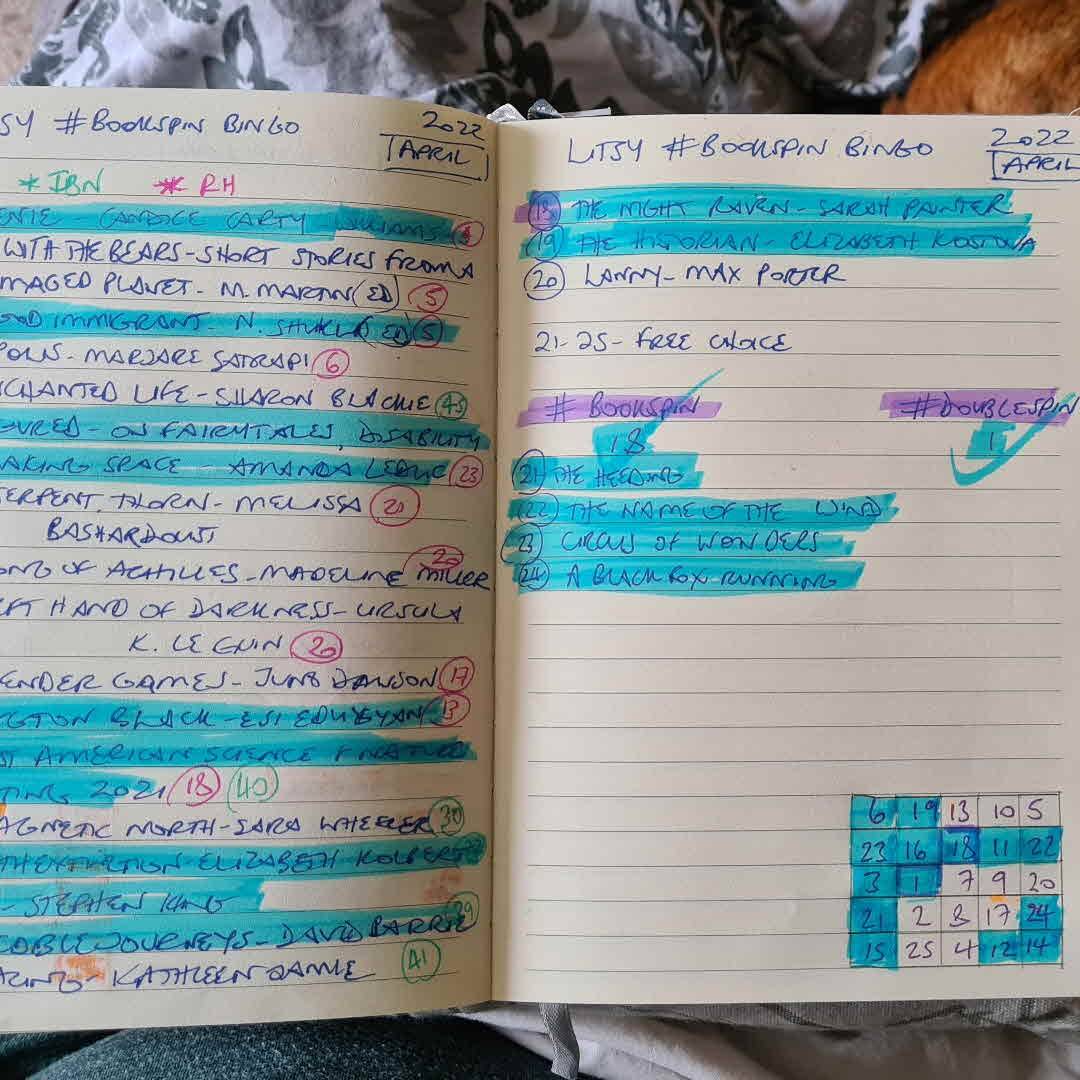 SY #BOOKSPIN BINGO
2022
APRIL
* IBN * RH
ENIE - CANDICE CARTY WILLIAMS
WITH THE BEARS - SHORT STORIES FROM A
MAGED PLANET - M. MARTIN (ED) 5
OOD IMMIGRANT - N. SHUKLA (ED) 5
POLIS - MARJARE SATRAPI 6
NCHANTED LIFE - SHARON BLACKIE 45
GURED - ON FAIRYTALES, DISABILITY
AKING SPACE - AMANDA LEDUC 23
SERPENT, THORN - MELISSA 21
BASHARDOUST
ONG OF ACHILLES - MADELINE MILLER 20
EFT HAND OF DARKNESS - URSULA
K. LE GUIN 20
ENDER GAMES - JUNO DAWSON 17
GTON BLACK - ESI EDUGYAN 13
ST AMERICAN SCIENCE & NATURE
TING 2021 18 40
AGNETIC NORTH - SARA WHEELER 30
TH EXTINCTION ELIZABETH KOLBERT
- STEPHEN KING
JOURNEYS - DAVID BARRIE 29
- KATHLEEN JAMIE 41
LITSY #BOOKSPIN BINGO
2022
APRIL
18 THE NIGHT RAVEN - SARAH PAINTER
19 THE HISTORIAN - ELIZABETH KOSTOVA
20 LANNY - MAX PORTER
21-25 - FREE CHOICE
# BOOKSPIN #DOUBLESPIN
18 1
21 THE HEEDING
22 THE NAME OF THE WIND
23 CIRCUS OF WONDERS
24 A BLACK FOX RUNNING
6 19 13 10 5
23 16 18 11 22
3 1 7 9 20
21 2 8 17 24
15 25 4 12 14